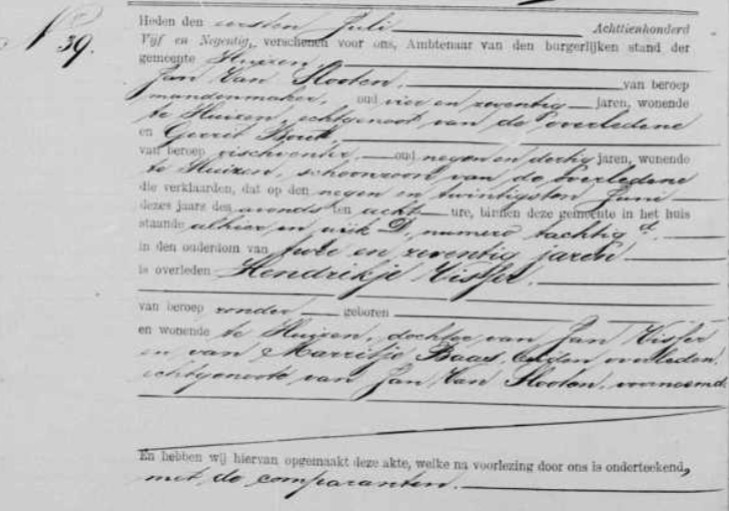 N 39.
Heden den eersten Juli Achttienhonderd
Vijf en Negentig, verschenen voor ons, Ambtenaar van den burgerlijken stand der
gemeente Huizen,
Jan Van Slooten, van beroep
mandenmaker, oud vier en zeventig jaren, wonende
te Huizen, echtgenoot van de overledene
en Gerrit Bout,
van beroep vischventer, oud negen en dertig jaren, wonende
te Huizen, schoonzoon van de overledene
die verklaarden, dat op den negen en twintigsten Juni
dezes jaars des avonds ten acht ure, binnen deze gemeente in het huis
staande alhier in wijk D, numero tachtig d.
in den ouderdom van twee en zeventig jaren
is overleden Hendrikje Visser.
van beroep zonder geboren
en wonende te Huizen, dochter van Jan Visser
en van Marritje Baas, beiden overleden,
echtgenoote van Jan Van Slooten, voornoemd.
En hebben wij hiervan opgemaakt deze akte, welke na voorlezing door ons is onderteekend,
met de comparanten.